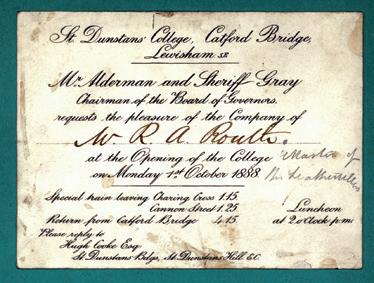 St. Dunstans' College, Catford Bridge,
Lewisham SE
Mr. Alderman and Sheriff Gray
Chairman of the Board of Governors.
requests the pleasure of the Company of
Mr R. A. Routh.
at the Opening of the College Master of
on Monday 1st October 1888 the Leathersellers
Special train leaving Charing Cross 1.15
Cannon Street 1.25 Luncheon
Return from Catford Bridge 4.15 at 2 o'clock p.m.
Please reply to
Hugh Cooke Esq.
St. Dunstans Bdgs, St. Dunstans Hill E.C.